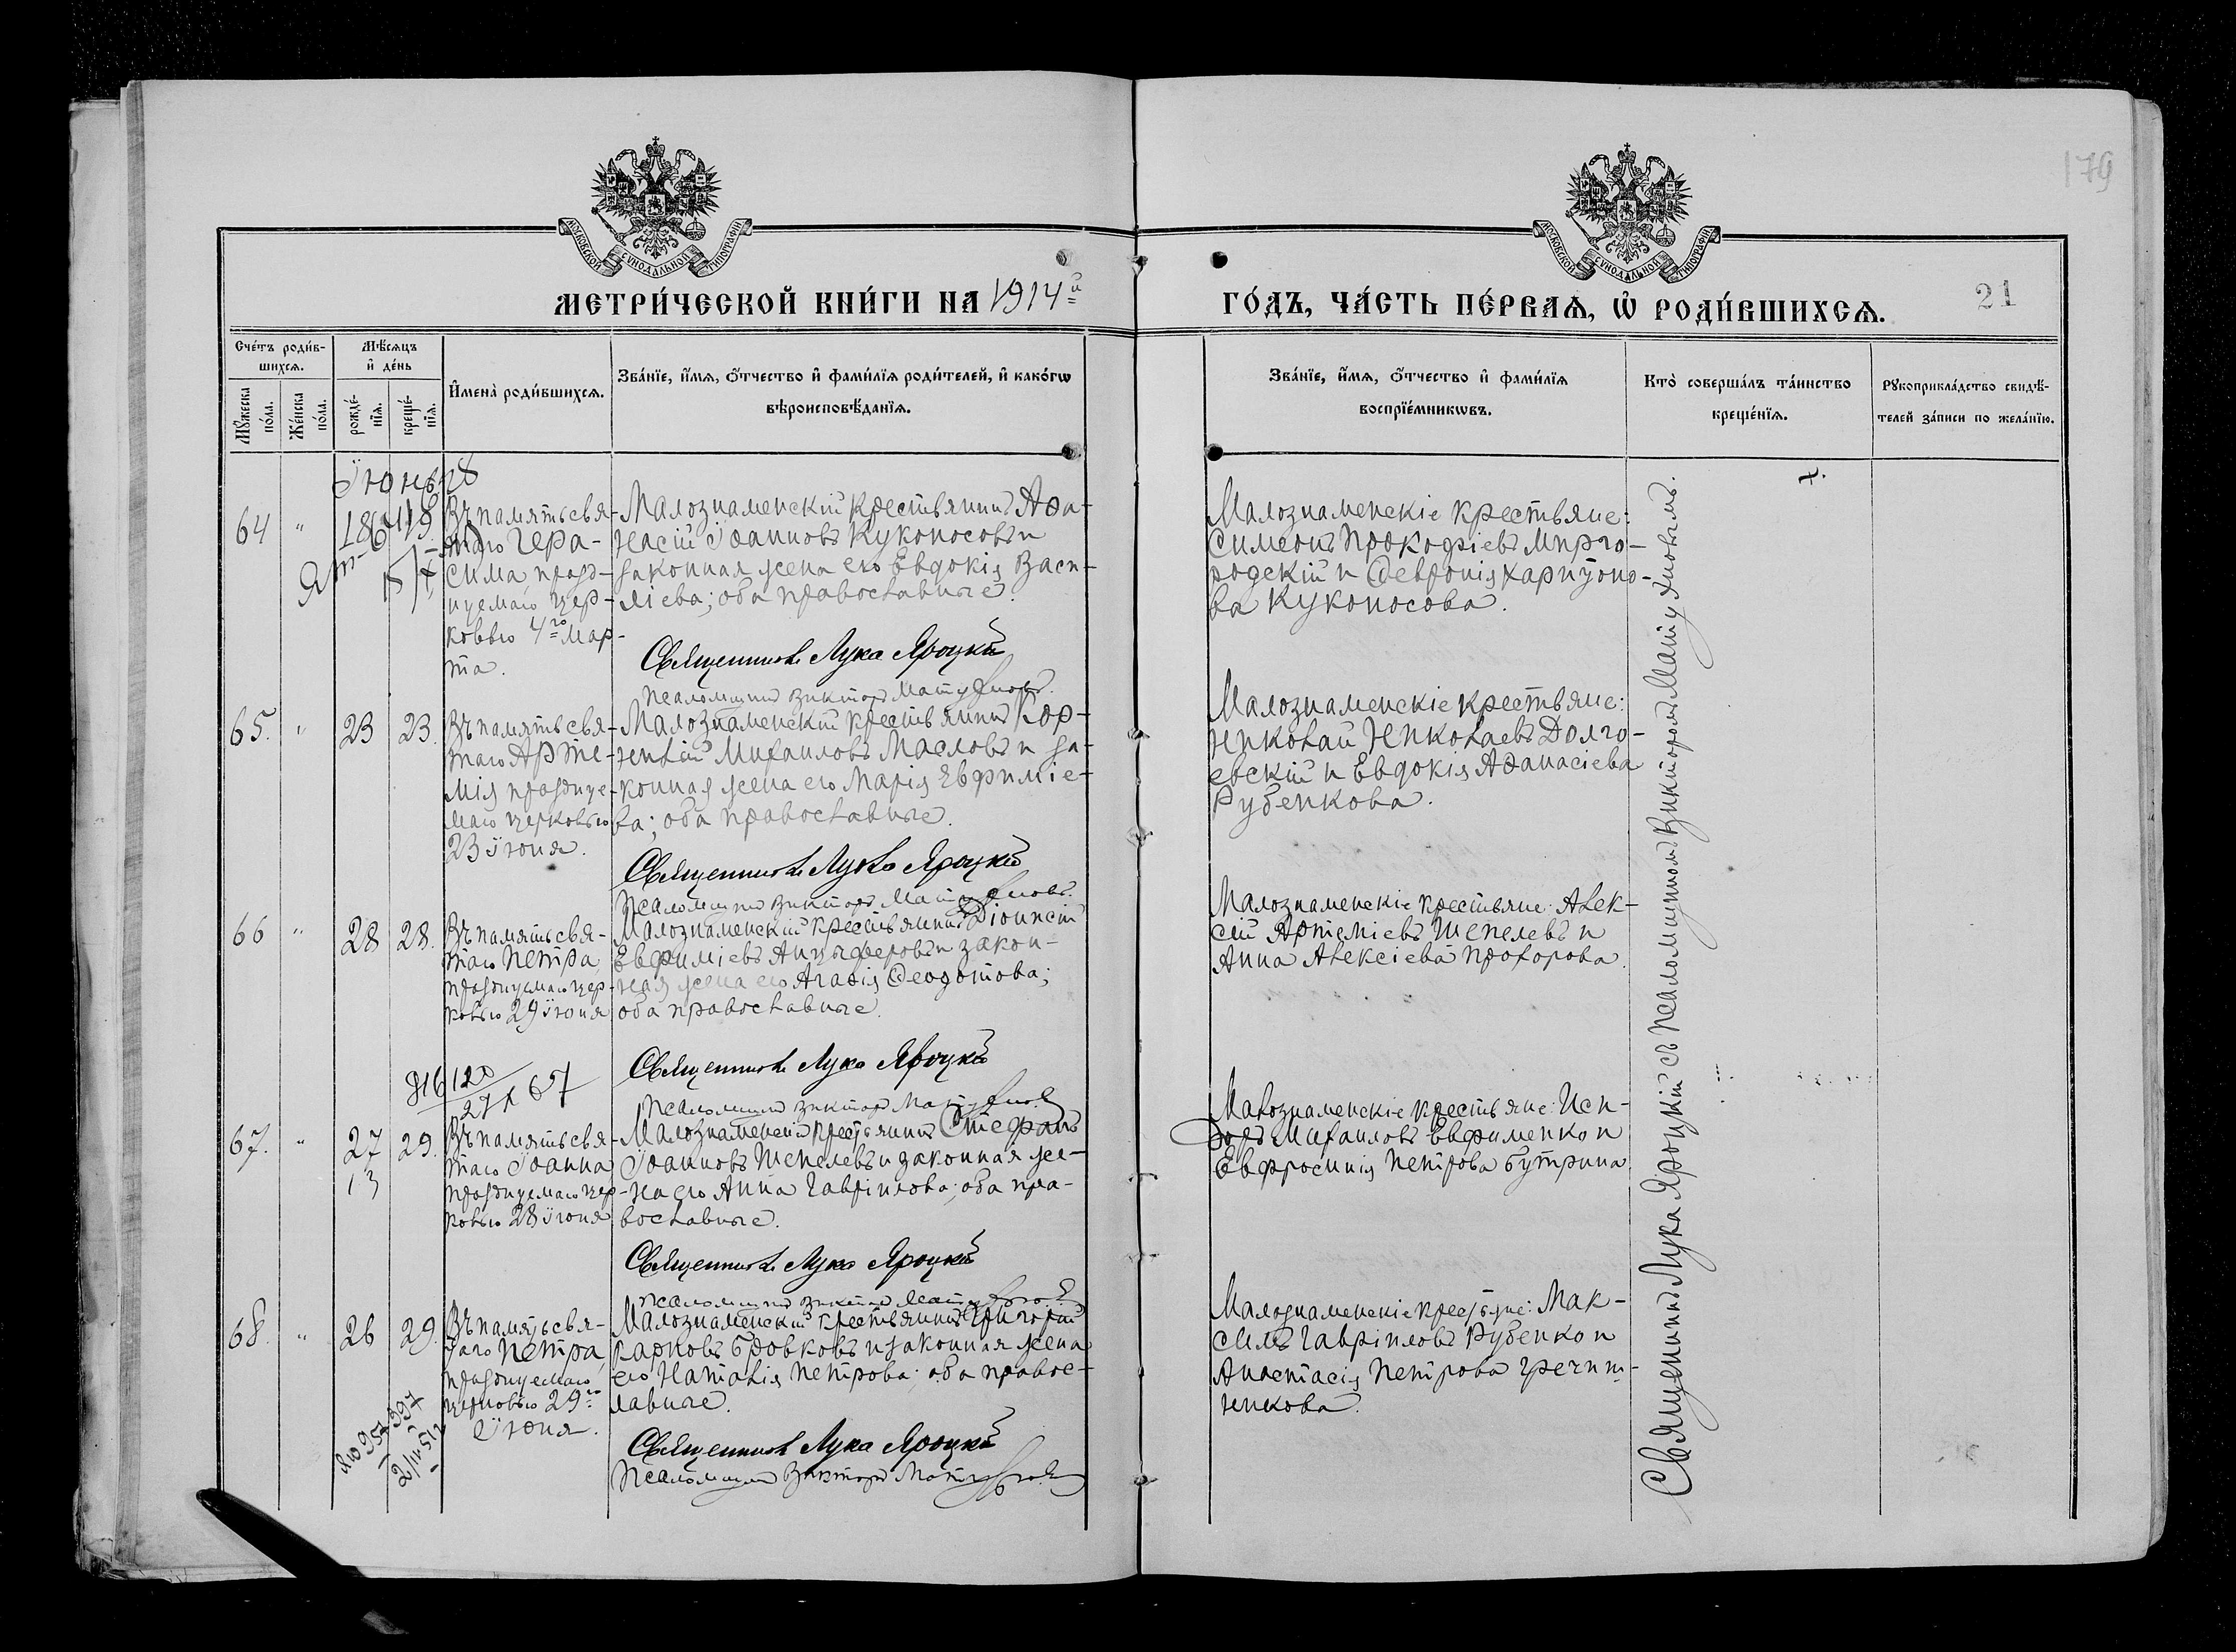 179
МОСКОВСКОЙ СѴНОДАЛЬНОЙ ТИПОГРАФІИ
МОСКОВСКОЙ СѴНОДАЛЬНОЙ ТИПОГРАФІИ
МЕТРИ́ЧЕСКОЙ КНИ́ГИ НА 1914й
ГО́ДЪ, ЧА́СТЬ ПЕ́РВАѦ, Ѡ҆ РОДИ́ВШИХСѦ.
21
Сче́тъ роди́в-
шихсѧ.
Мѣ́сѧцъ
и҆ де́нь
Мꙋ́жеска по́ла.
Же́нска по́ла.
рожде́-
нїѧ.
креще́-
нїѧ.
И҆мена̀ роди́вшихсѧ.
Зва́нїе, и҆́мѧ, ѻ҆́тчество и҆ фами́лїѧ роди́телей, и҆ како́гѡ
вѣроисповѣ́данїѧ.
Зва́нїе, и҆́мѧ, ѻ҆́тчество и҆ фами́лїѧ
воспрїе́мникѡвъ.
Кто̀ соверша́лъ та́инство
креще́нїѧ.
Рꙋкоприкла́дство свидѣ́-
телей за́писи по жела́нїю.
Іюнь
64 " 18 19
Въ память свя-
таго Гера-
сима празд-
нуемаго цер-
ковью 4го Мар-
та.
Малознаменскій крестьянинъ Аѳа-
насій Іоанновъ Куконосовъ и
законная жена его Евдокія Васи-
ліева; оба православные.
Священникъ Лука Яроцкій
Псаломщикъ Викторъ Матушновъ.
Малознаменскіе крестьяне:
Симеонъ Прокофіевъ Мирго-
родскій и Ѳевронія Харитоно-
ва Куконосова.
65. " 23 23.
Въ память свя-
таго Арте-
мія празднуе-
маго церковью
23 іюня.
Малознаменскій крестьянинъ Кор-
нилій Михаиловъ Масловъ и за-
конная жена его Марія Евфиміе-
ва; оба православные.
Священникъ Лука Яроцкій
Псаломщикъ Викторъ Матушновъ.
Малознаменскіе крестьяне:
Николай Николаевъ Долго-
евскій и Евдокія Аѳанасіева
Рубенкова.
66 " 28 28.
Въ память свя-
таго Петра
празднуемаго цер-
ковью 29 іюня
Малознаменскій крестьянинъ Діонисій
Евфиміевъ Анцыферовъ и закон-
ная жена его Агаѳія Ѳеодотова;
оба православные.
Священникъ Лука Яроцкій
Псаломщикъ Викторъ Матушновъ
Малознаменскіе крестьяне: Алек-
сій Артеміевъ Шепелевъ и
Анна Алексіева Прохорова.
67. " 27 29.
13
Въ память свя-
таго Іоанна
празднуемаго цер-
ковью 28 іюня
Малознаменскій крестьянинъ Стефанъ
Іоанновъ Шепелевъ и законная же-
на его Анна Гавріилова; оба пра-
вославные.
Священникъ Лука Яроцкій
Псаломщикъ Викторъ Матушновъ
Малознаменскіе крестьяне: Иси-
доръ Михаиловъ Евфименко и
Евфросинія Петрова Бутрина
68. " 26 29.
Въ память свя-
таго Петра
празднуемаго
церковью 29го
Іюня.
Малознаменскій крестьянинъ Григорій
Карповъ Бровковъ и законная жена
его Наталія Петрова; оба правос-
лавные.
Священникъ Лука Яроцкій
Псаломщикъ Викторъ Матушновъ
Малознаменскіе крестьяне: Мак-
симъ Гавріиловъ Рубенко и
Анастасія Петрова Гречиш-
никова.
Священникъ Лука Яроцкій съ псаломщикомъ Викторомъ Матушновымъ.